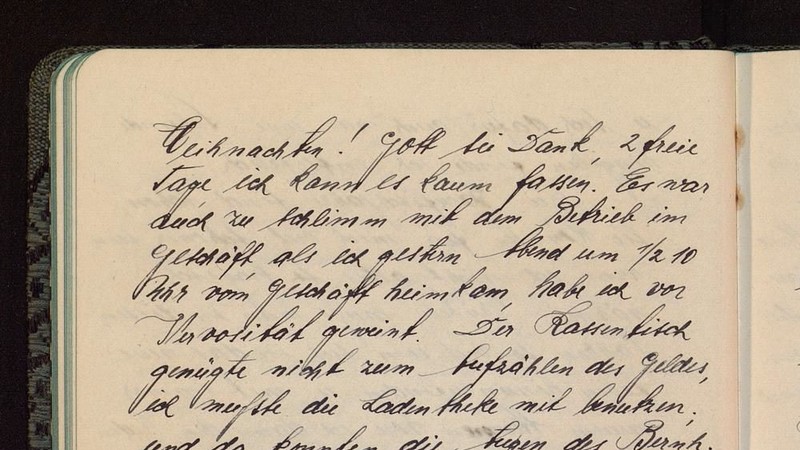 Weihnachten! Gott sei Dank, 2 freie
Tage ich kann es kaum fassen. Es war
auch zu schlimm mit dem Betrieb im
Geschäft als ich gestern Abend um 1/2 10
Uhr vom Geschäft heimkam, habe ich vor
Nervosität geweint. Der Kassentisch
genügte nicht zum Aufzählen des Geldes,
ich mußte die Ladentheke mit benutzen,
und da konnten die Augen des Bernh.